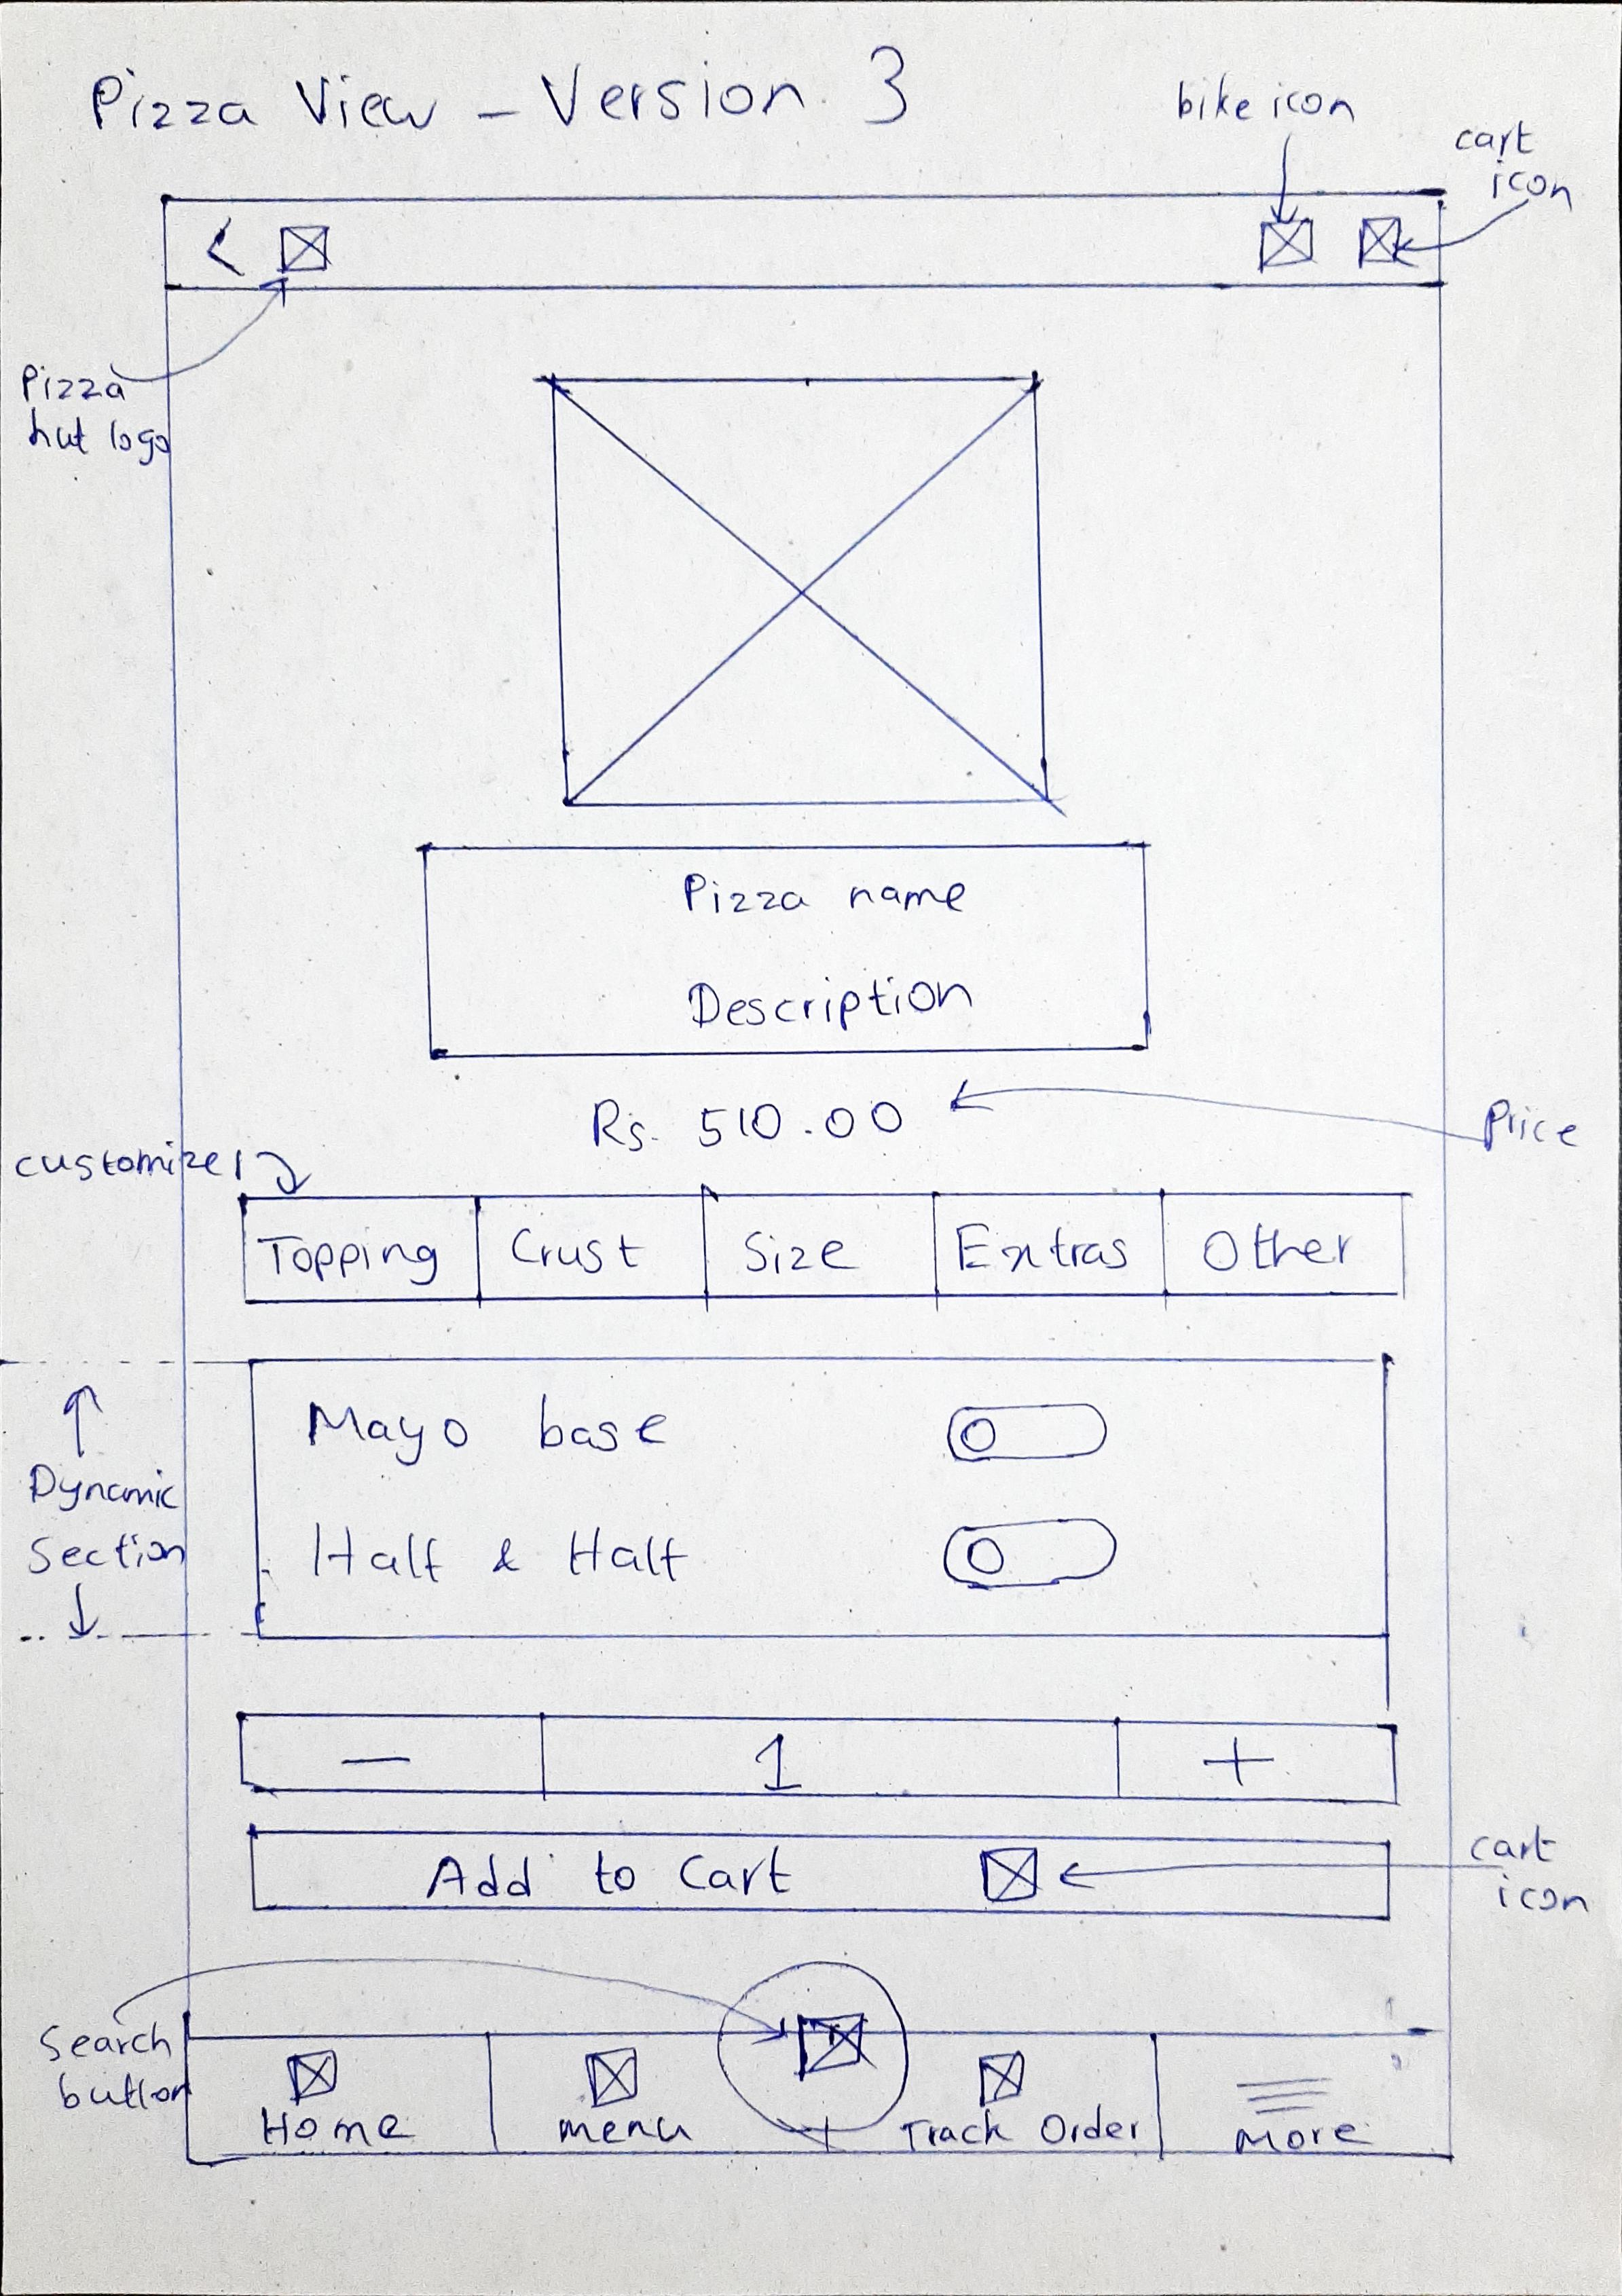 Pizza View - Version 3
bike icon
cart
icon
<
Pizza
hut logo
Pizza name
Description
Rs. 510.00
Price
customize
Topping Crust Size Extras Other
Mayo base
Half & Half
Dynamic
Section
- 1 +
Add to Cart
cart
icon
Search
button
Home menu Track Order More